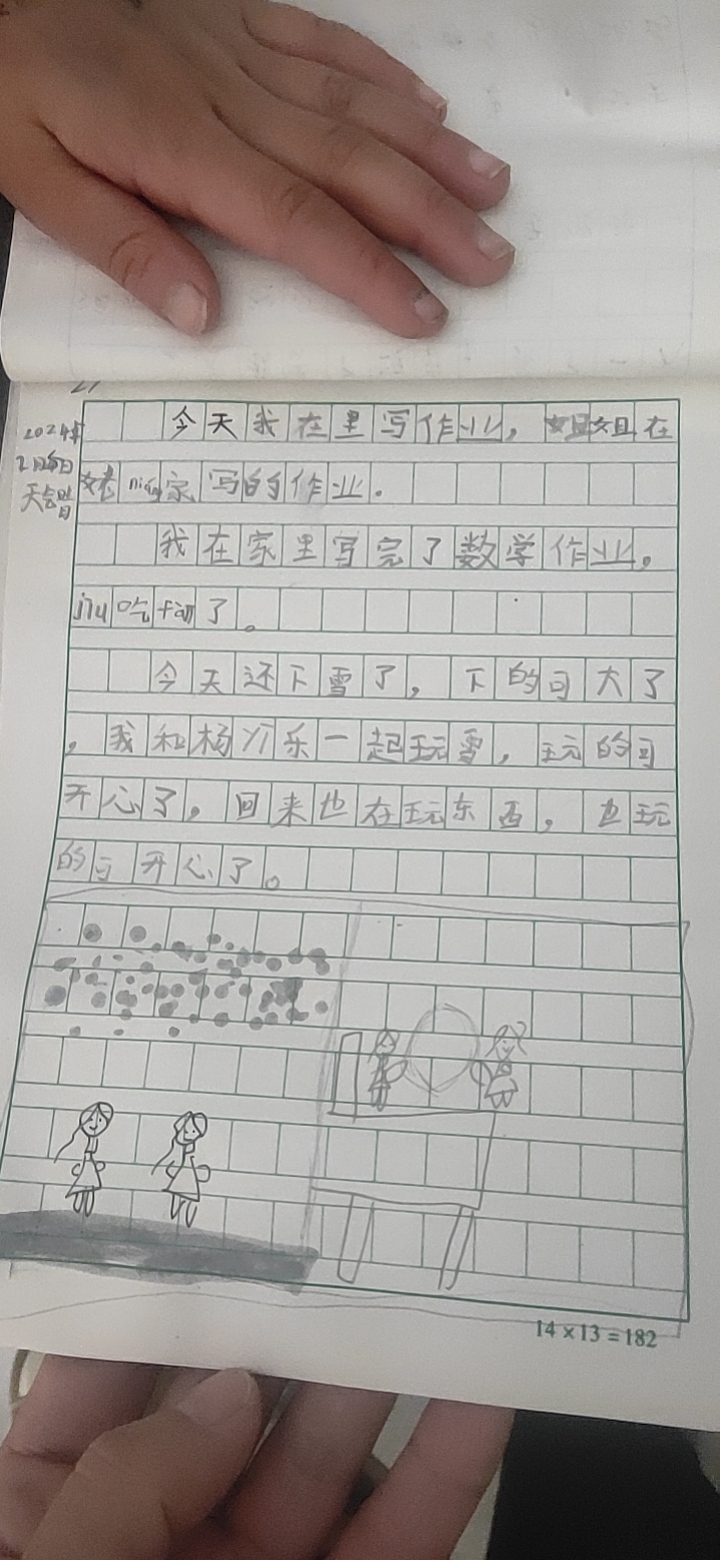 2024年
2月
天
今天我在里写作业，姐姐在
姥 ning家写的作业。
我在家里写完了数学作业。
jiu吃fan了。
今天还下雪了，下的可大了
，我和杨 乐一起玩雪，玩的可
开心了，回来也在玩东西，也玩
的可开心了。
14×13=182